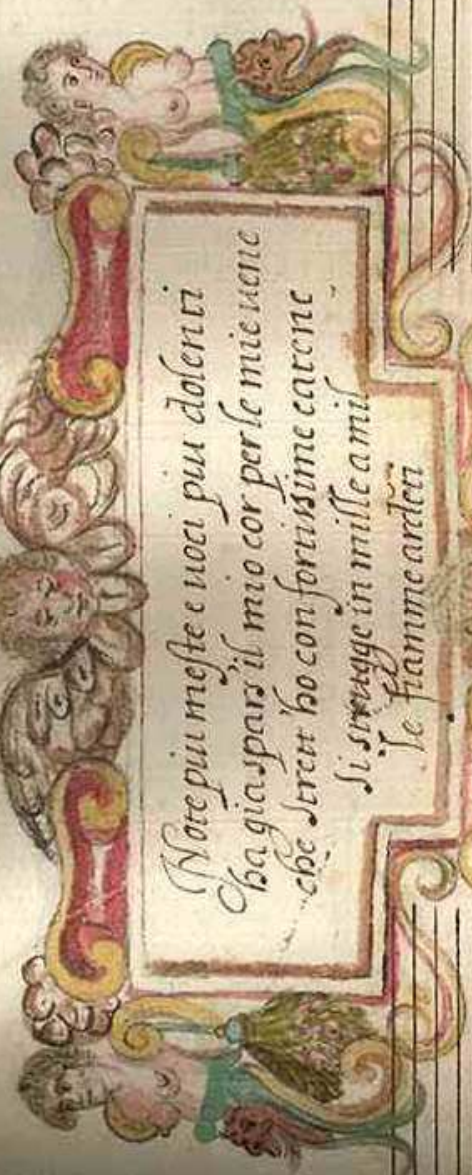 Note piu meste e uoci piu dolenti
ha gia spars' il mio cor per le mie uene
che strett' ho con fortissime catene
si strugge in mille a mil
le fiamme ardeti